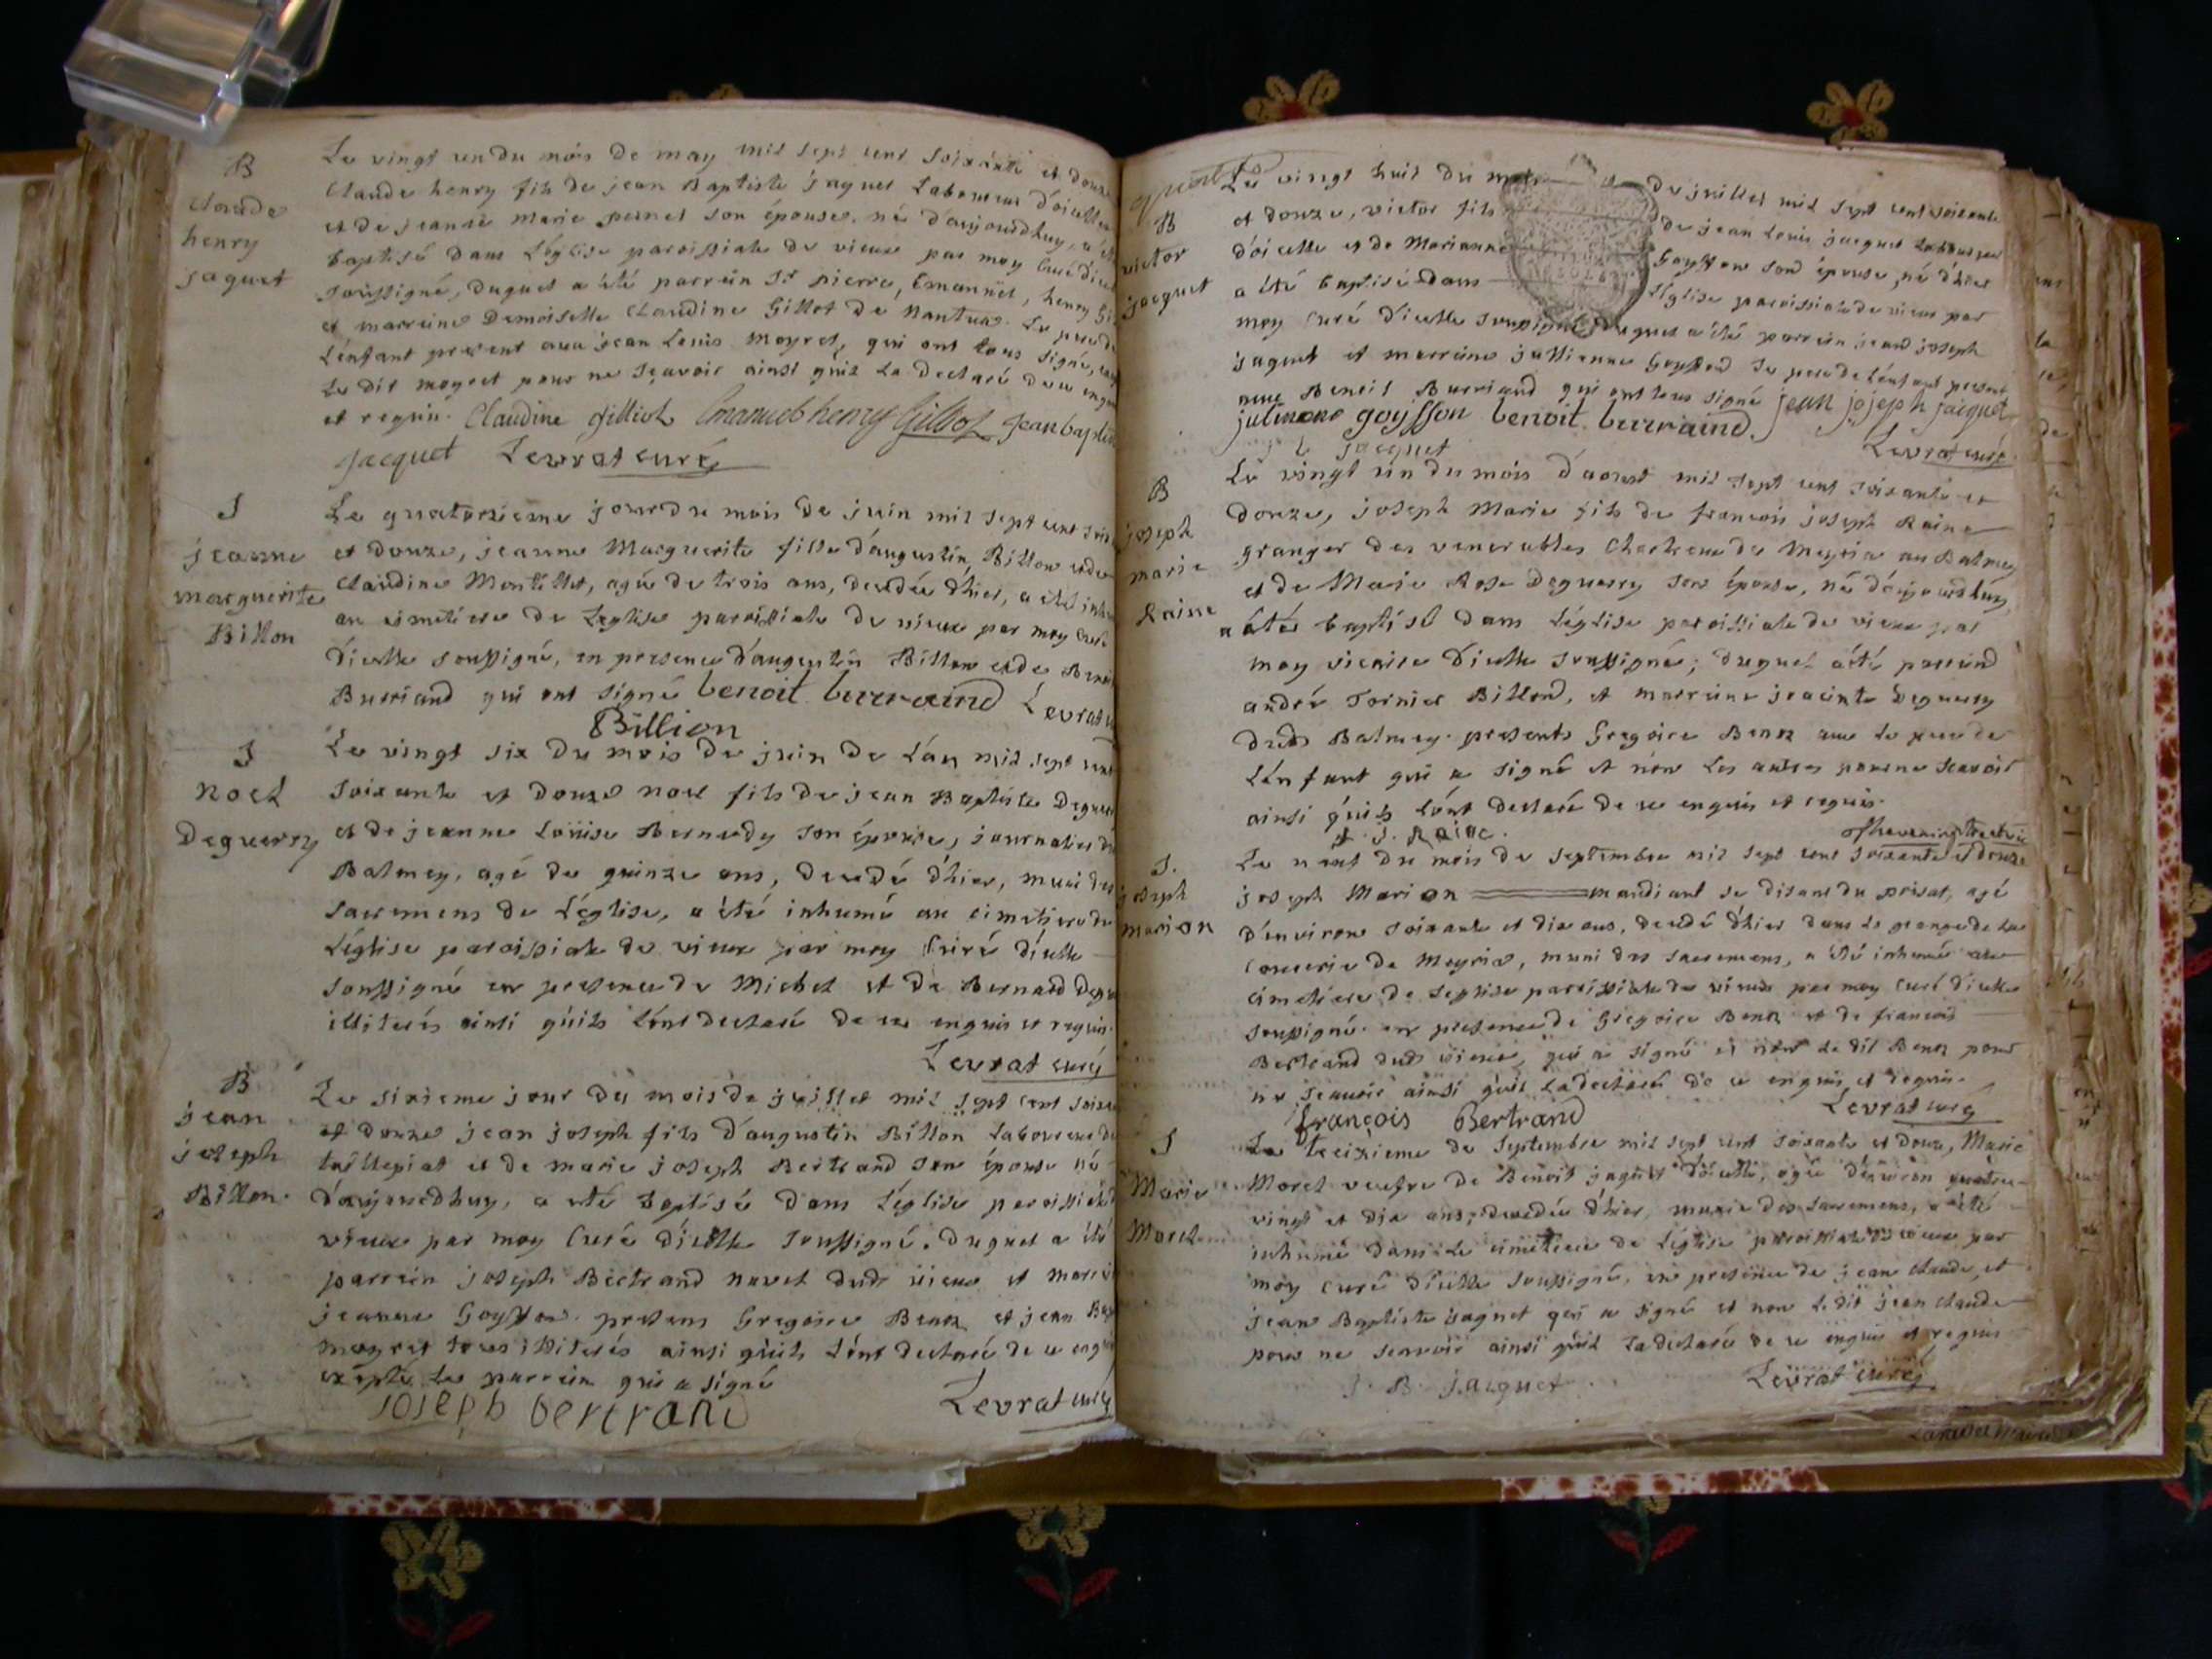 B
Claude
henry
jaquet
Le vingt un du mois de may mil sept cent soixante et douze
Claude henry fils de jean Baptiste jaquet Laboureur d'icelle
et de jeanne marie pernet son épouse, né d'aujourdhuy, a été
baptisé dans L'églisse paroissiale de vieux par moy Curé d'icelle
soussigné, duquel a été parrein Sr pierre, Emanuël, henry
et marreine Demoiselle Claudine Gillot de Nantua. Le pere de
L'enfant present avec jean Louis moyret, qui ont tous signé,
Le dit moyret pour ne sçavoir ainsi quil la declaré de ce enquis
et requis. Claudine gilliot Emanuel henry Gilliot jean baptiste
jacquet Levrat curé
S
jeanne
marguerite
Billon
Le quatorzieme jour du mois de juin mil sept cent
et douze, jeanne Marguerite fille d'augustin Billon et de
Claudine Montillet, agée de trois ans, decedée d'hier, a été
au cimetiere de L'eglise paroissiale de vieux par moy Curé
d'icelle soussigné, en presence d'augustin Billon et de Benoit
Burriand qui ont signé benoit burraind Levrat
Billion
S
Noel
Deguerry
Le vingt six du mois de juin de L'an mil sept cent
soixante et douze noel fils de jean Baptiste
et de jeanne Loüise Bernudy son épouse, journalier du
Balmey, agé de quinze ans, decedé d'hier, muni des
sacremens de L'église, a été inhumé au cimetiere de
L'église paroissiale de vieux par moy Curé d'icelle
soussigné en presence de Michel et de Bernard
illiterés ainsi qu'ils L'ont declaré de ce enquis et requis.
Levrat curé
B
jean
joseph
Billon.
Le sixieme jour du mois de juillet mil sept cent
et douze jean joseph fils d'augustin Billon Laboureur de
et de marie joseph Bertrand son épouse né
d'aujourdhuy, a été baptisé dans L'église paroissiale
vieux par moy Curé d'icelle soussigné. Duquel a été
parrein joseph Bertrand dudt vieux et
jeanne Goysson. presens Gregoire Benoz et jean
moyret tous illiterés ainsi qu'ils L'ont declaré de ce
excepté Le parrein qui a signé
joseph bertrand Levrat curé
B
victor
jacquet
Le vingt huit du mois de juillet mil sept cent soixante
et douze, victor fils de jean Louis jacquet Laboureur
d'icelle et de Marianne Goysson son épouse, né d'hier
a été baptisé dans L'église paroissiale de vieux par
moy Curé d'icelle soussigné duquel a été parrein jean joseph
jaquet et marreine jullienne Goysson Le pere de L'enfant present
avec Benoit Burriand qui ont tous signé jean joseph jacquet
julienne goysson benoit burraind
jacquet Levrat curé
B
joseph
marie
Raine
Le vingt un du mois d'aoust mil sept cent soixante et
douze, joseph Marie fils de francois joseph Raine
granger des venerables Chartreux de Meyria au Balmey
et de Marie Rose Deguerry son épouse, né d'aujourdhuy
a été baptisé dans L'église paroissiale de vieux par
moy vicaire d'icelle soussigné; duquel a été parrein
andré Billond, et marreine Deguerry
dudt Balmey. presents Gregoire Benoz avec Le pere de
L'enfant qui a signé et non Les autres pour ne scavoir
ainsi qu'ils L'ont declaré de ce enquis et requis.
f. j. Raine.
S.
joseph
marion
Le neuf du mois de septembre mil sept cent soixante et douze
joseph Marion mandiant se disant du prisat, agé
d'environ soixante et dix ans, decedé d'hier dans Le grange de La
Correrie de Meyria, muni des sacremens, a été inhumé au
cimetiere de L'eglise paroissiale de vieux par moy Curé d'icelle
soussigné en presence de Gregoire Benoz et de francois
Bertrand dudt vieux, qui a signé et non Le dit Benoz pour
ne sçavoir ainsi qu'il La declaré de ce enquis et requis.
françois Bertrand Levrat curé
S
Marie
Morel
Le treizieme de septembre mil sept cent soixante et douze, Marie
Morel veufve de Benoit jaquet d'icelle, agée d'environ quatre
vingt et dix ans, decedée d'hier, munie des sacremens, a été
inhumé dans Le cimetiere de L'église paroissiale de vieux par
moy Curé d'icelle soussigné, en presence de jean claude, et
jean Baptiste jaquet qui a signé et non Ledit jean claude
pour ne sçavoir ainsi qu'il La declaré de ce enquis et requis
J. B. jacquet. Levrat curé